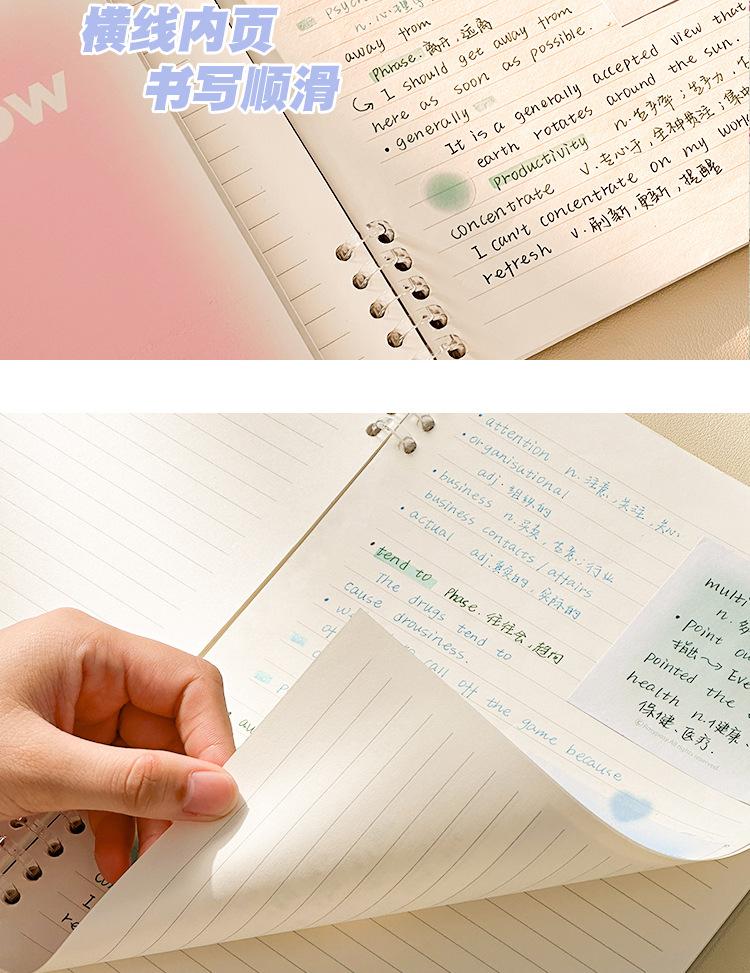 横线内页
书写顺滑
ow
psyc
n.心理学
away from
Phrase.离开,远离
I should get away from
here as soon as possible.
• generally
It is a generally accepted view that
earth rotates around the sun.
productivity n.生产率;生产力,
concentrate v.专心于,全神贯注;集中
I can't concentrate on my work
refresh v.刷新,更新,提醒
• attention n.注意,关注,关心
• organisational
adj.组织的
• business n.买卖,生意,行业
business contacts/affairs
• actual adj.真实的,实际的
• tend to Phase.往往会,趋向
The drugs tend to
cause drowsiness.
• w
of
to call off the game because
p
• au
multi
n.多
• point ou
指出→ Eve
pointed the
health n.健康
保健、医疗.
All rights reserved.
co
I
re